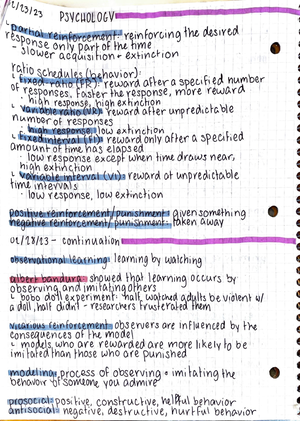 2/23/23 PSYCHOLOGY
partial reinforcement: reinforcing the desired
response only part of the time
· slower acquisition + extinction
ratio schedules (behavior):
↳ fixed ratio (FR): reward after a specified number
of responses. faster the response, more reward
· high response, high extinction
↳ variable ratio (VR): reward after unpredictable
number of responses
· high response, low extinction
↳ fixed interval (FI): reward only after a specified
amount of time has elapsed
· low response except when time draws near,
high extinction
↳ variable interval (VI): reward at unpredictable
time intervals
· low response, low extinction
positive reinforcement/punishment: given something
negative reinforcement/punishment: taken away
02/23/23 - continuation
observational learning: learning by watching
albert bandura: showed that learning occurs by
observing and imitating others
↳ bobo doll experiment: half watched adults be violent w/
a doll, half didn't - researchers frusterated them
vicarious reinforcement: observers are influenced by the
consequences of the model
↳ models who are rewarded are more likely to be
imitated than those who are punished
modeling: process of observing + imitating the
behavior of someone you admire
prosocial: positive, constructive, helpful behavior
antisocial: negative, destructive, hurtful behavior